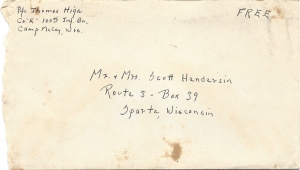 Pfc Thomas Higa
Co. "A" 100th Inf. Bn.
Camp McCoy, Wis.
FREE
Mr. & Mrs. Scott Henderson
Route 3 - Box 39
Sparta, Wisconsin